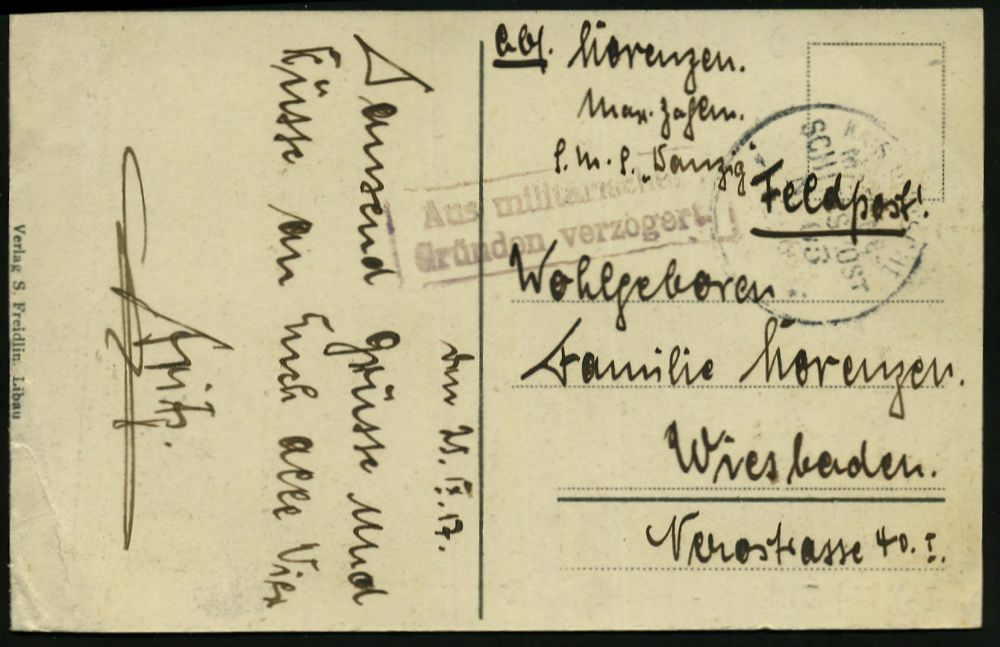 Abs. Lorenzen.
Max. Zahlm.
S. M. S. „Danzig"
Feldpost!
Aus militärischen
Gründen verzögert.
Wohlgeboren
Familie Lorenzen.
Wiesbaden.
Nerostrasse 40. I.
den 25. IX. 17.
Tausend Grüsse und
Küsse an Euch alle Vier
Fritz.
Verlag S. Freidlin Libau